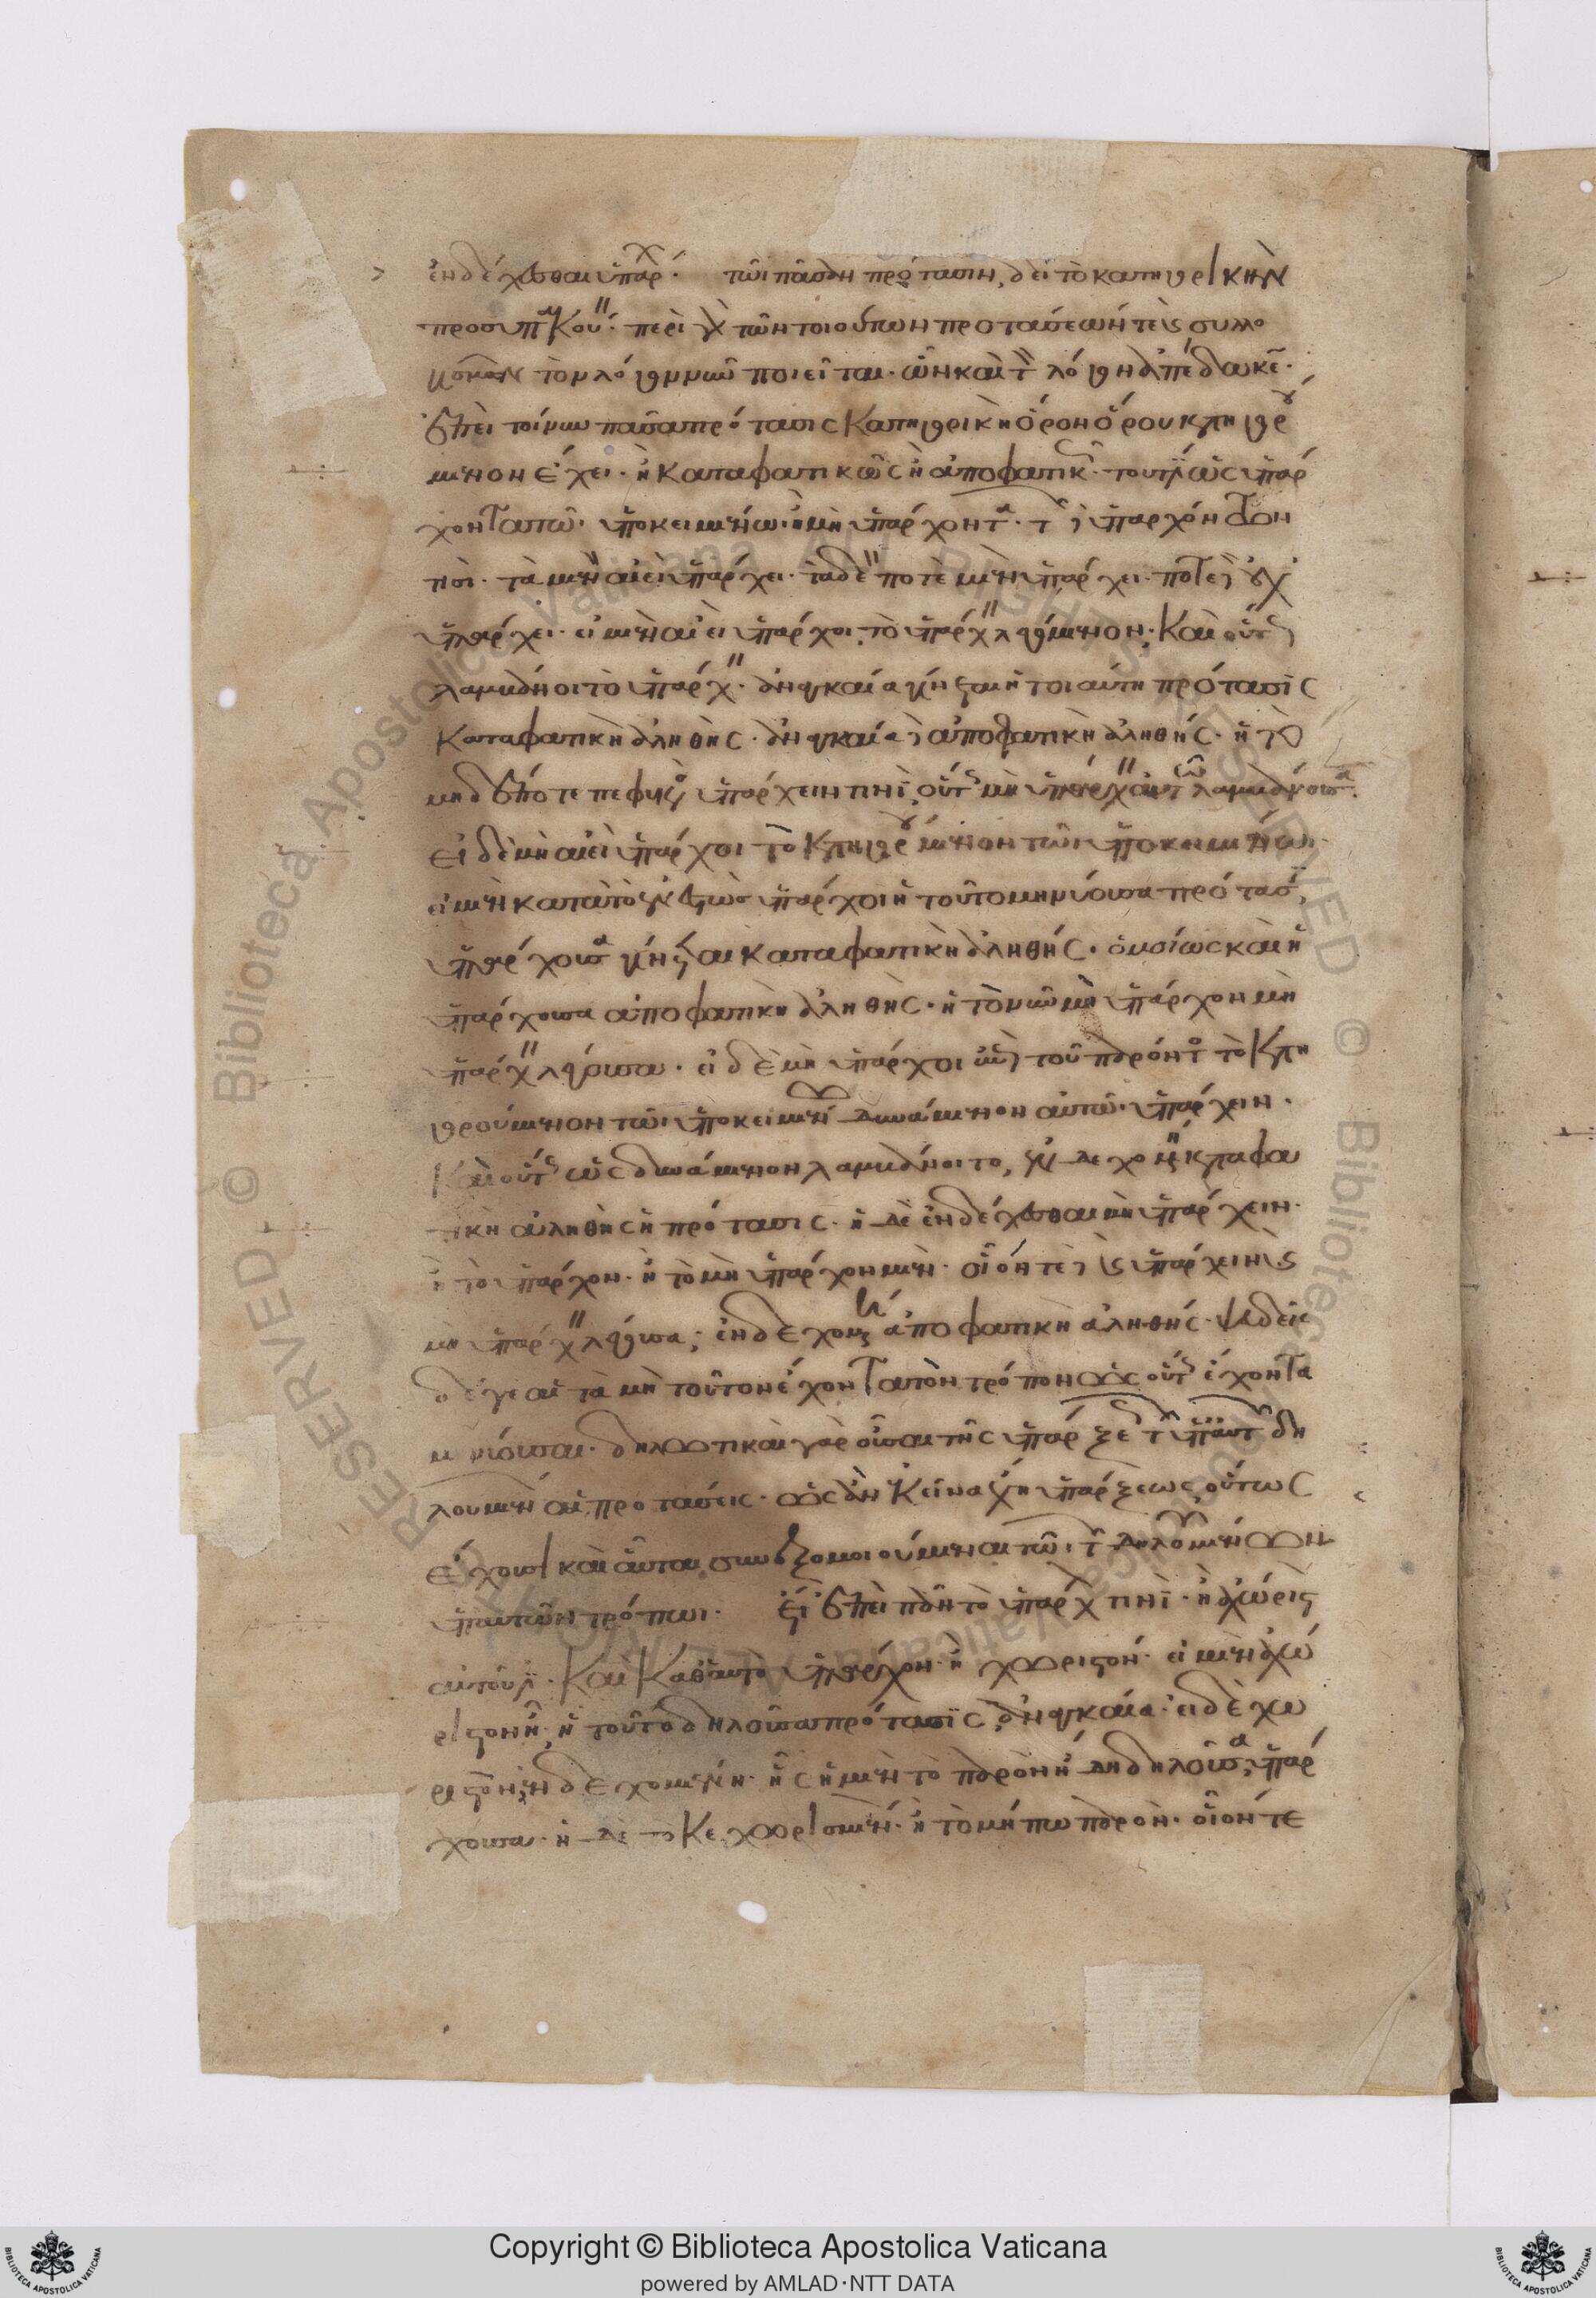 ἐνδέχεσθαι ὑπάρχ τῶι πᾶσαν πρότασιν, δεῖ τὸ κατηγορικὴν
προσυπακού. περὶ γὰρ τῶν τοιούτων προτάσεων τε καὶ συλλο
τὸν λόγον νῦν ποιεῖται. ὧν καὶ τ λόγον ἀπέδωκε.
ἐπεὶ τοίνυν πᾶσα πρότασις κατηγορικὴ ὅρον ὅρου κατηγορού
μενον ἔχει. ἢ καταφατικῶς ἢ ἀποφατικ. τουτέστιν ὡς ὑπάρ
χοντα τῶ ὑποκειμένω. ἢ μὴ ὑπάρχοντα. τ δὲ ὑπαρχόντων
τισὶ. τὰ μὲν ἀεὶ ὑπάρχει. τὰ δὲ ποτὲ μὲν ὑπάρχει. ποτὲ δὲ οὐχ
ὑπάρχει. εἰ μὲν ἀεὶ ὑπάρχοι τὸ ὑπάρχειν λεγόμενον. καὶ οὕτως
λαμβάνοιτο ὑπάρχ. ἀναγκαία γίνεται ἡ τοιαύτη πρότασις
καταφατικὴ ἀληθής. ἀναγκαία δὲ ἀποφατικὴ ἀληθής. ἡ τὸ
μηδέποτε πεφυκὸς ὑπάρχειν τινὶ, οὕτως μὴ ὑπάρχ αὐτῶ λαμβάνουσα.
εἰ δὲ μὴ ἀεὶ ὑπάρχοι τὸ κατηγορούμενον τῶι ὑποκειμένωι.
εἰ μὲν κατὰ τὸ ὑπάρχοι ἡ τοῦτο μηνύουσα πρότασις,
ὑπάρχουσα γίνεται καταφατικὴ ἀληθής. ὁμοίως καὶ ἡ
ὑπάρχουσα ἀποφατικὴ ἀληθής. ἡ τὸ νῦν μὴ ὑπάρχον μὴ
ὑπάρχ λέγουσα. εἰ δὲ μὴ ὑπάρχοι τοῦ παρόντος τὸ κατη
γορούμενον τῶι ὑποκειμένω δυνάμενον αὐτῶι ὑπάρχειν.
καὶ οὕτως ὡς δυνάμενον λαμβάνοιτο, καταφα
τικὴ ἀληθὴς ἡ πρότασις. ἡ δὲ ἐνδέχεσθαι μὴ ὑπάρχειν.
ἢ τὸ ὑπάρχον. ἢ τὸ μὴ ὑπάρχον μὲν. οἷόν τε δὲ καὶ ὑπάρχειν καὶ
μὴ ὑπάρχ λέγουσα, ἐνδεχομένη ἀποφατικὴ ἀληθής. ψευδεῖς
δέ γε αἱ τὰ μὴ τοῦτον ἔχοντα τὸν τρόπον ὡς οὕτως ἔχοντα
μηνύουσαι. δηλωτικαὶ γὰρ οὖσαι τῆς ὑπάρξεως τ ὑπ αὐτ δη
λουμένων αἱ προτάσεις. ὡς ἂν ἐκεῖνα ἔχη ὑπάρξεως, οὕτως
ἔχουσι καὶ αὗται συνεξομοιούμεναι τῶι τ δηλουμένων
ὑπ αὐτῶν τρόπωι. ἔτι ἐπεὶ πᾶν τὸ ὑπάρχ τινὶ. ἢ ἀχώριστ
αὐτοῦ. καὶ καθ αὑτὸ ὑπάρχον. ἢ χωριστόν. εἰ μὲν ἀχώ
ριστον ἦν, ἡ τοῦτο δηλοῦσα πρότασις, ἀναγκαία. εἰ δὲ χω
ριστὸν, ἐνδεχομένη. ἧς ἡ μὲν τὸ παρὸν ἤδη δηλοῦσα, ὑπάρ
χουσα. ἡ δὲ τὸ κεχωρισμένον. ἢ τὸ μήπω παρὸν. οἷόν τε
Copyright © Biblioteca Apostolica Vaticana
powered by AMLAD·NTT DATA